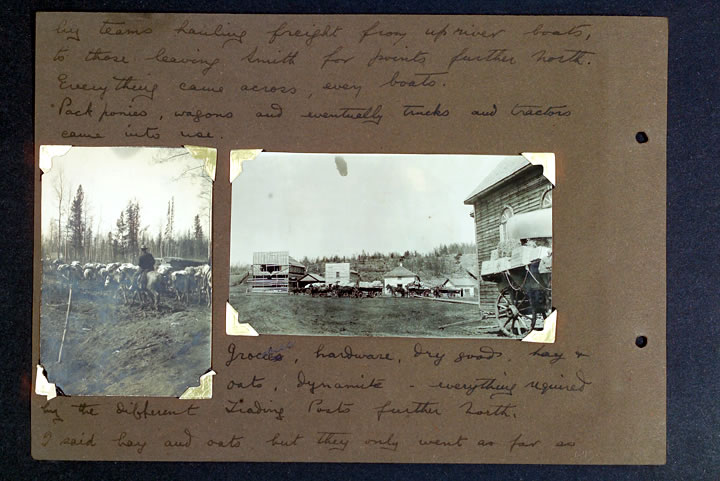 by teams hauling freight from up river boats,
to those leaving Smith for points further North.
Everything came across, even boats.
Pack ponies, wagons and eventually trucks and tractors
came into use.
Groceries, hardware, dry goods, hay &
oats, dynamite - everything required
by the different Trading Posts further North.
I said hay and oats but they only went as far as